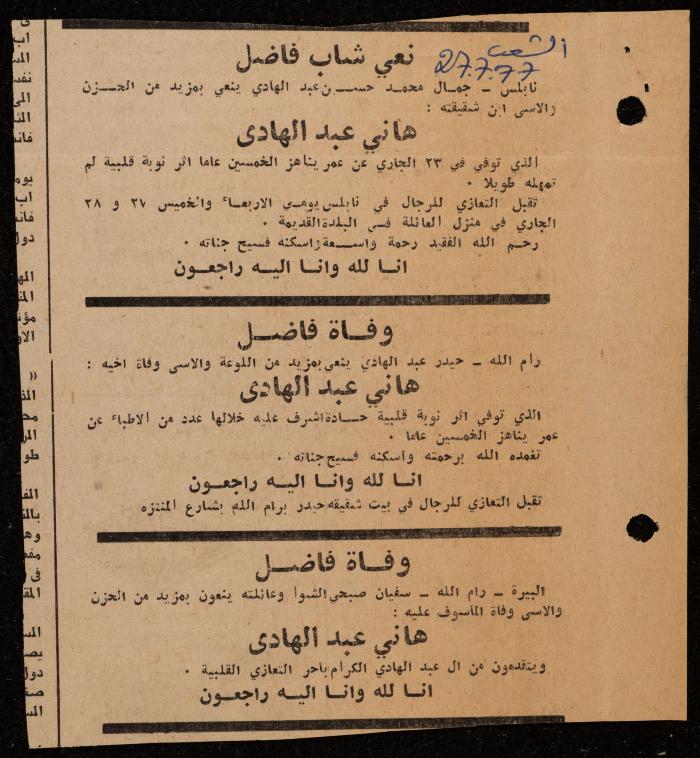 الشعب
27.7.77
نعي شاب فاضل
نابلس ــ جمال محمد حسن عبد الهادي ينعي بمزيد من الحزن
والاسى ابن شقيقته :
هاني عبد الهادى
الذي توفي في ٢٣ الجاري عن عمر يناهز الخمسين عاما اثر نوبة قلبية لم
تمهله طويلا ٠
تقبل التعازي للرجال في نابلس يومي الاربعاء والخميس ٢٧ و ٢٨
الجاري في منزل العائلة في البلدة القديمة ٠
رحم الله الفقيد رحمة واسعة واسكنه فسيح جناته ٠
انا لله وانا اليه راجعون
وفاة فاضل
رام الله ــ حيدر عبد الهادي ينعي بمزيد من اللوعة والاسى وفاة اخيه :
هاني عبد الهادى
الذي توفي اثر نوبة قلبية حادة اشرف عليه خلالها عدد من الاطباء عن
عمر يناهز الخمسين عاما ٠
تغمده الله برحمته وأسكنه فسيح جناته ٠
انا لله وانا اليه راجعون
تقبل التعازي للرجال في بيت شقيقه حيدر برام الله بشارع المنتزه
وفاة فاضل
البيرة ــ رام الله ــ سفيان صبحي الشوا وعائلته ينعون بمزيد من الحزن
والاسى وفاة المأسوف عليه :
هاني عبد الهادى
ويتقدمون من ال عبد الهادي الكرام بأحر التعازي القلبية ٠
انا لله وانا اليه راجعون